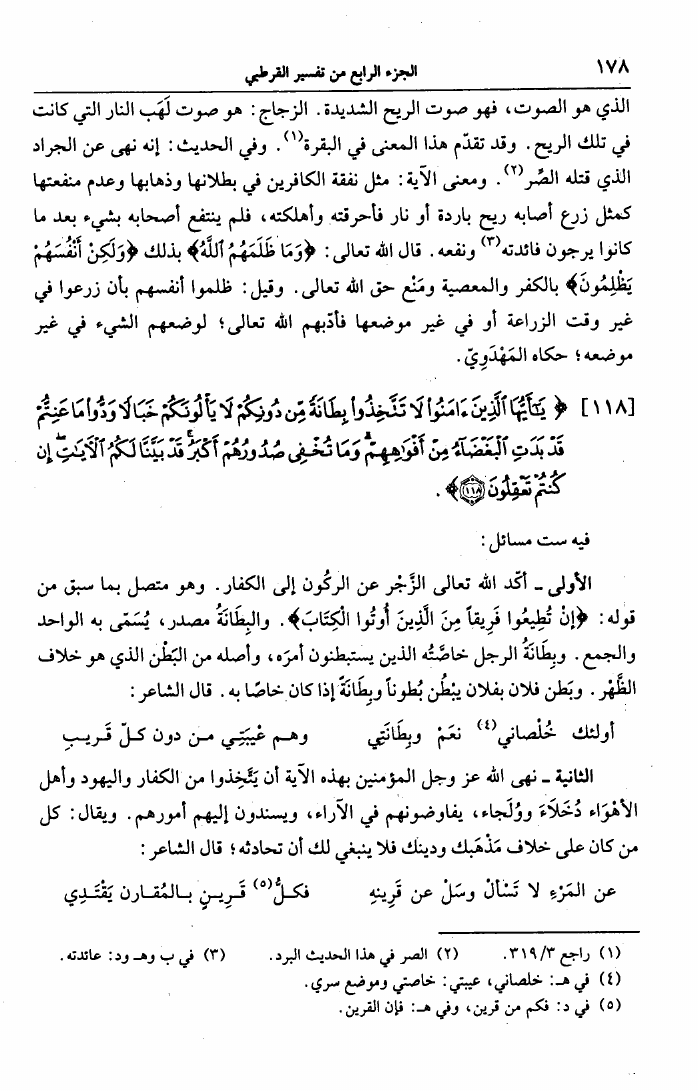 ١٧٨ الجزء الرابع من تفسير القرطبي
الذي هو الصوت، فهو صوت الريح الشديدة. الزجاج: هو صوت لَهَب النار التي كانت
في تلك الريح. وقد تقدّم هذا المعنى في البقرة(١). وفي الحديث: إنه نهى عن الجراد
الذي قتله الصِّر(٢). ومعنى الآية: مثل نفقة الكافرين في بطلانها وذهابها وعدم منفعتها
كمثل زرع أصابه ريح باردة أو نار فأحرقته وأهلكته، فلم ينتفع أصحابه بشيء بعد ما
كانوا يرجون فائدته(٣) ونفعه. قال الله تعالى: ﴿وَمَا ظَلَمَهُمُ اللَّهُ﴾ بذلك ﴿وَلَكِنْ أَنْفُسَهُمْ
يَظْلِمُونَ﴾ بالكفر والمعصية ومَنْع حق الله تعالى. وقيل: ظلموا أنفسهم بأن زرعوا في
غير وقت الزراعة أو في غير موضعها فأدّبهم الله تعالى؛ لوضعهم الشيء في غير
موضعه؛ حكاه المَهْدَوِيّ.
[١١٨] ﴿يَٰٓأَيُّهَا ٱلَّذِينَ ءَامَنُوا۟ لَا تَتَّخِذُوا۟ بِطَانَةً مِّن دُونِكُمْ لَا يَأْلُونَكُمْ خَبَالًا وَدُّوا۟ مَا عَنِتُّمْ
قَدْ بَدَتِ ٱلْبَغْضَآءُ مِنْ أَفْوَٰهِهِمْ وَمَا تُخْفِى صُدُورُهُمْ أَكْبَرُ ۚ قَدْ بَيَّنَّا لَكُمُ ٱلْـَٔايَٰتِ ۖ إِن
كُنتُمْ تَعْقِلُونَ ١١٨﴾.
فيه ست مسائل:
الأولى ـ أكّد الله تعالى الزَّجْر عن الركُون إلى الكفار. وهو متصل بما سبق من
قوله: ﴿إِنْ تُطِيعُوا فَرِيقاً مِنَ الَّذِينَ أُوتُوا الْكِتَابَ﴾. والبِطَانَةُ مصدر، يُسَمّى به الواحد
والجمع. وبِطَانَةُ الرجل خاصَّتُه الذين يستبطنون أمرَه، وأصله من البَطْن الذي هو خلاف
الظَّهْر. وبَطن فلان بفلان يبْطُن بُطوناً وبِطانَةً إذا كان خاصًا به. قال الشاعر:
أولئك خُلْصاني(٤) نعَمْ وبِطَانَتِي وهـم عَيْبَتِـي مـن دون كـلّ قَـرِيـبِ
الثانية ـ نهى الله عز وجل المؤمنين بهذه الآية أن يَتَّخِذوا من الكفار واليهود وأهل
الأهْوَاء دُخَلَاءَ ووُلَجاء، يفاوضونهم في الآراء، ويسندون إليهم أمورهم. ويقال: كل
من كان على خلاف مَذْهَبك ودينك فلا ينبغي لك أن تحادثه؛ قال الشاعر:
عن المَرْءِ لا تَسْألْ وسَلْ عن قَرِينِهِ فكلُّ(٥) قَـرِيـنٍ بـالمُقـارن يَقْتَـدِي
(١) راجع ٣/٣١٩. (٢) الصر في هذا الحديث البرد. (٣) في ب وهـ ود: عائدته.
(٤) في هـ: خلصاني، عيبتي: خاصتي وموضع سري.
(٥) في د: فكم من قرين، وفي هـ: فإن القرين.